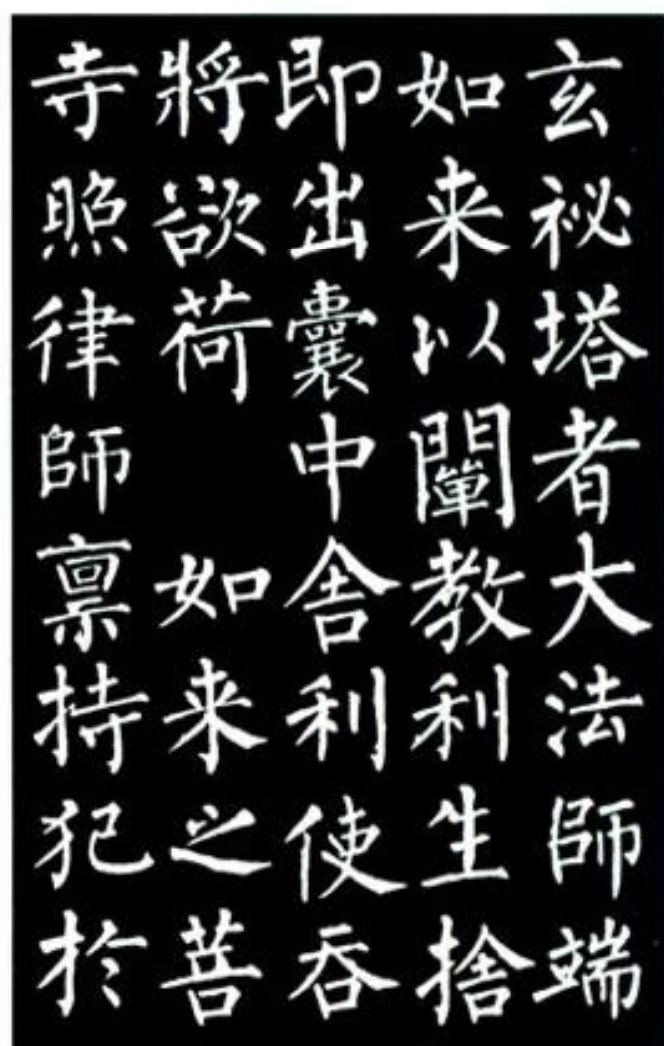 玄祕塔者大法師端
如来以闡教利生捨
即出囊中舍利使吞
將欲荷 如来之菩
寺照律師禀持犯於